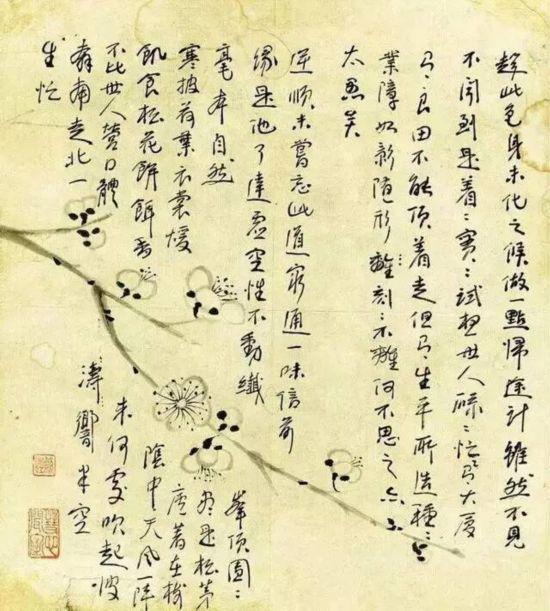 趁此色身未化之候做一點歸途計雖然不見
不聞到是着〻實〻試想世人碌〻忙〻大廈
良田不能頂着走但生平所造種〻
業障如影隨形刻〻不離何不思之
太愚矣
逆順未嘗忘此道窮通一味信前
緣是他了達虛空性不動纖
毫本自然
寒披荷葉衣裳煖
飢食松花餅餌香
不比世人營口體
奔南走北一
生忙
峯頂團〻
尽是松茅
廬著在樹
陰中天風一陣
來何處吹起波
濤響半空